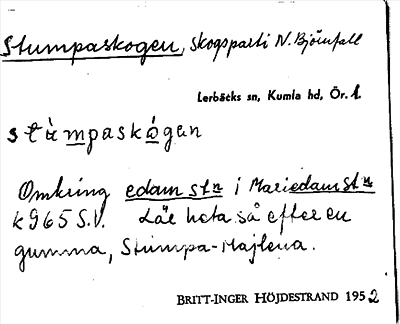 Stumpaskogen, skogsparti N. Björnfall
Lerbäcks sn, Kumla hd, Ör. 1.
stùmpaskógen
Omkring edam stn i Mariedam stn
k 965 S.V. Lär heta så efter en
gumma, Stumpa-Majlena.
BRITT-INGER HÖJDESTRAND 1952